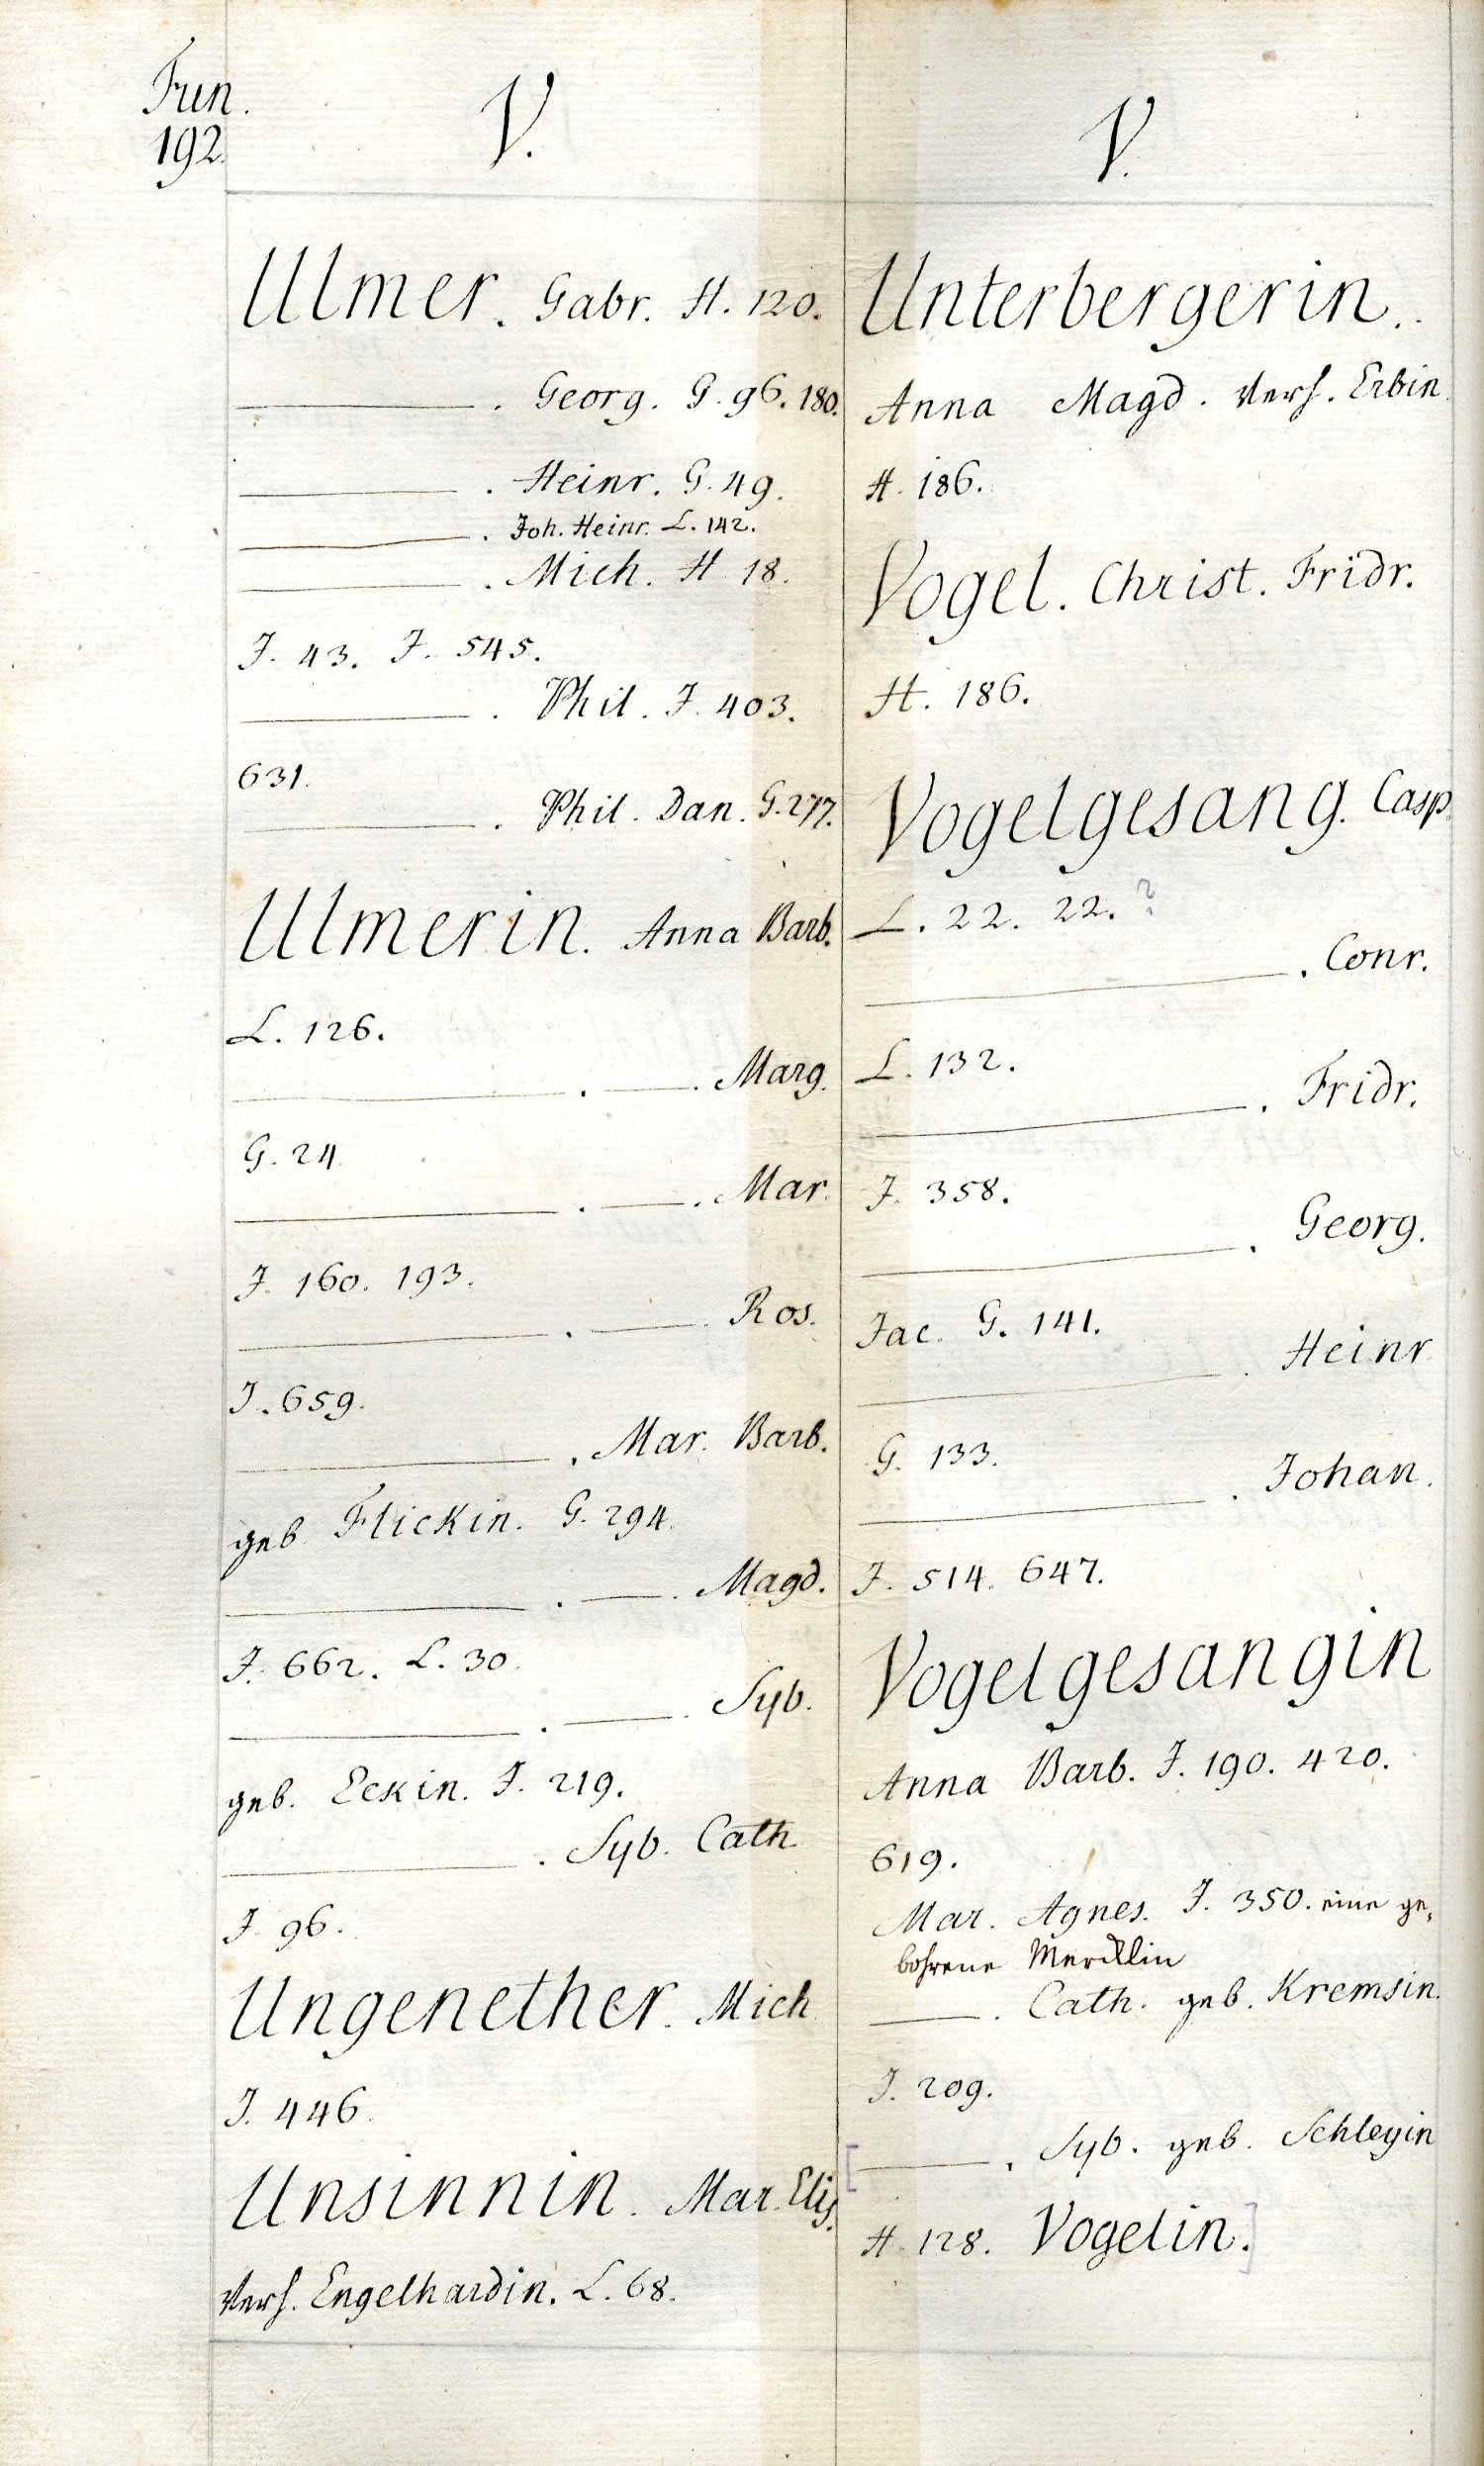 Fun.
192.
V.
Ulmer. Gabr. H. 120.
———. Georg. G. 96. 180.
———. Heinr. G. 49.
———. Joh. Heinr. L. 142.
———. Mich. H. 18.
J. 43. J. 545.
———. Phil. J. 403.
631.
———. Phil. Dan. G. 277.
Ulmerin. Anna Barb.
L. 126.
———. ——. Marg.
G. 24.
———. ——. Mar.
J. 160. 193.
———. ——. Ros.
J. 659.
———. Mar. Barb.
geb. Flickin. G. 294.
———. ——. Magd.
J. 662. L. 30.
———. ——. Syb.
geb. Eckin. J. 219.
———. Syb. Cath.
J. 96.
Ungenether. Mich.
J. 446.
Unsinnin. Mar. Elis.
Verh. Engelhardin. L. 68.
V.
Unterbergerin.
Anna Magd. Verh. Erbin.
H. 186.
Vogel. Christ. Fridr.
H. 186.
Vogelgesang. Casp.
L. 22. 22. ?
———. Conr.
L. 132.
———. Fridr.
J. 358.
———. Georg.
Jac. G. 141.
———. Heinr.
G. 133.
———. Johan.
J. 514. 647.
Vogelgesangin
Anna Barb. J. 190. 420.
619.
Mar. Agnes. J. 350. eine ge-
bohrene Mercklin
———. Cath. geb. Kremsin.
J. 209.
[———. Syb. geb. Schleyin
H. 128. Vogelin.]